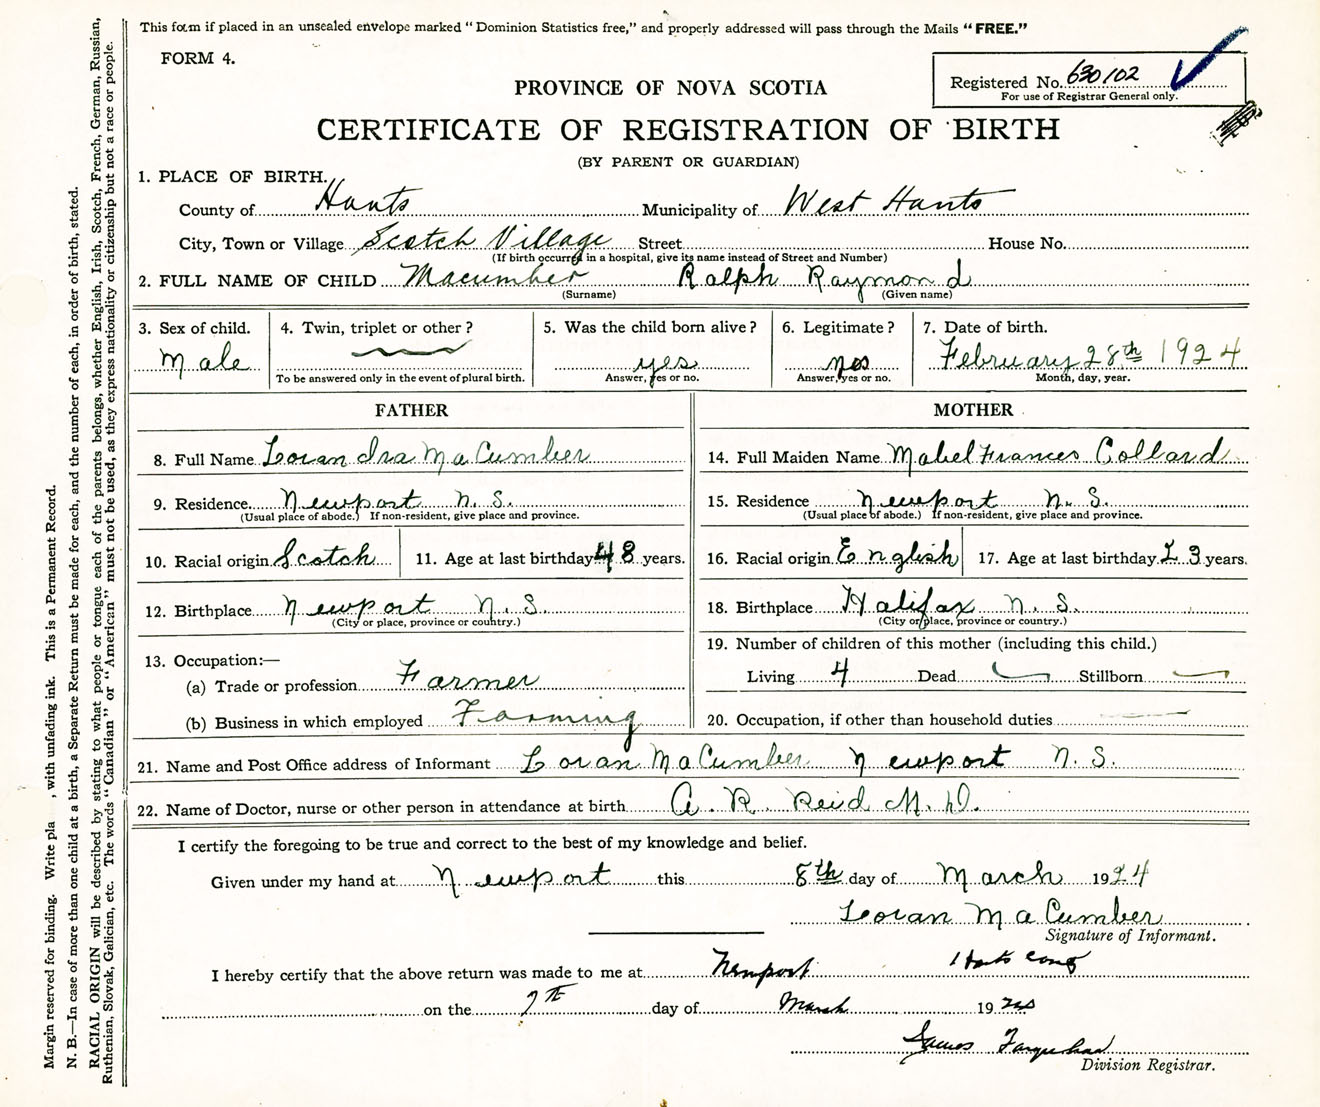 This form if placed in an unsealed envelope marked "Dominion Statistics free," and properly addressed will pass through the Mails "FREE."
FORM 4.
Registered No. 630102
For use of Registrar General only.
PROVINCE OF NOVA SCOTIA
CERTIFICATE OF REGISTRATION OF BIRTH
(BY PARENT OR GUARDIAN)
1. PLACE OF BIRTH.
County of Hants Municipality of West Hants
City, Town or Village Scotch Village Street House No.
(If birth occurred in a hospital, give its name instead of Street and Number)
2. FULL NAME OF CHILD Macumber Ralph Raymond
(Surname) (Given name)
3. Sex of child. 4. Twin, triplet or other? 5. Was the child born alive? 6. Legitimate? 7. Date of birth.
Male yes yes February 28th 1924
To be answered only in the event of plural birth. Answer, yes or no. Answer, yes or no. Month, day, year.
FATHER MOTHER
8. Full Name Loran Ira MaCumber 14. Full Maiden Name Mabel Frances Collard
9. Residence Newport N.S. 15. Residence Newport N.S.
(Usual place of abode.) If non-resident, give place and province. (Usual place of abode.) If non-resident, give place and province.
10. Racial origin Scotch 11. Age at last birthday 48 years. 16. Racial origin English 17. Age at last birthday 23 years.
12. Birthplace Newport N.S. 18. Birthplace Halifax N.S.
(City or place, province or country.) (City or place, province or country.)
13. Occupation:— 19. Number of children of this mother (including this child.)
(a) Trade or profession Farmer Living 4 Dead Stillborn
(b) Business in which employed Farming 20. Occupation, if other than household duties
21. Name and Post Office address of Informant Loran MaCumber Newport N.S.
22. Name of Doctor, nurse or other person in attendance at birth A. R. Reid M.D.
I certify the foregoing to be true and correct to the best of my knowledge and belief.
Given under my hand at Newport this 8th day of March 1924
Loran MaCumber
Signature of Informant.
I hereby certify that the above return was made to me at Newport Hants
on the day of March 19 24
James Farquhar
Division Registrar.
Margin reserved for binding. Write pla , with unfading ink. This is a Permanent Record.
N. B.—In case of more than one child at a birth, a Separate Return must be made for each, and the number of each, in order of birth, stated.
RACIAL ORIGIN will be described by stating to what people or tongue each of the parents belongs, whether English, Irish, Scotch, French, German, Russian,
Ruthenian, Slovak, Galician, etc. The words "Canadian" or "American" must not be used, as they express nationality or citizenship but not a race or people.